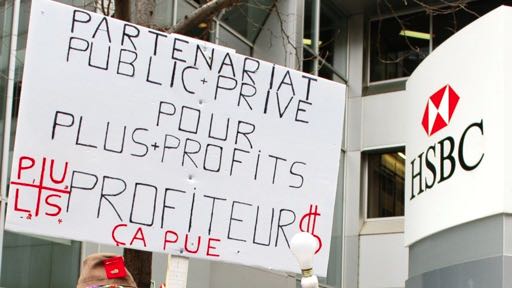 PARTENARIAT
PUBLIC+PRIVÉ
POUR
PLUS+PROFITS
P.U.
L.S
PROFITEUR$
ÇA PUE
HSBC